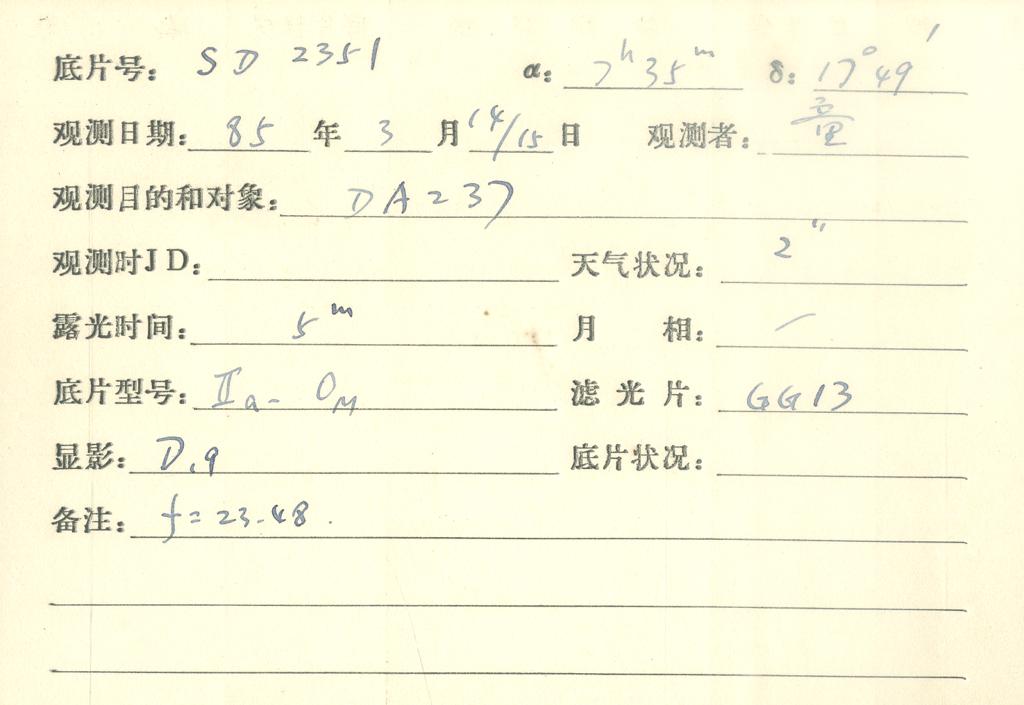 底片号: SD 2351 α: 7ʰ35ᵐ δ: 17°49′
观测日期: 85 年 3 月 14/15 日 观测者: 童
观测目的和对象: DA237
观测时JD: 天气状况: 2″
露光时间: 5ᵐ 月 相: —
底片型号: Ⅱa-OM 滤光片: GG13
显影: D.19 底片状况:
备注: f=23.48.